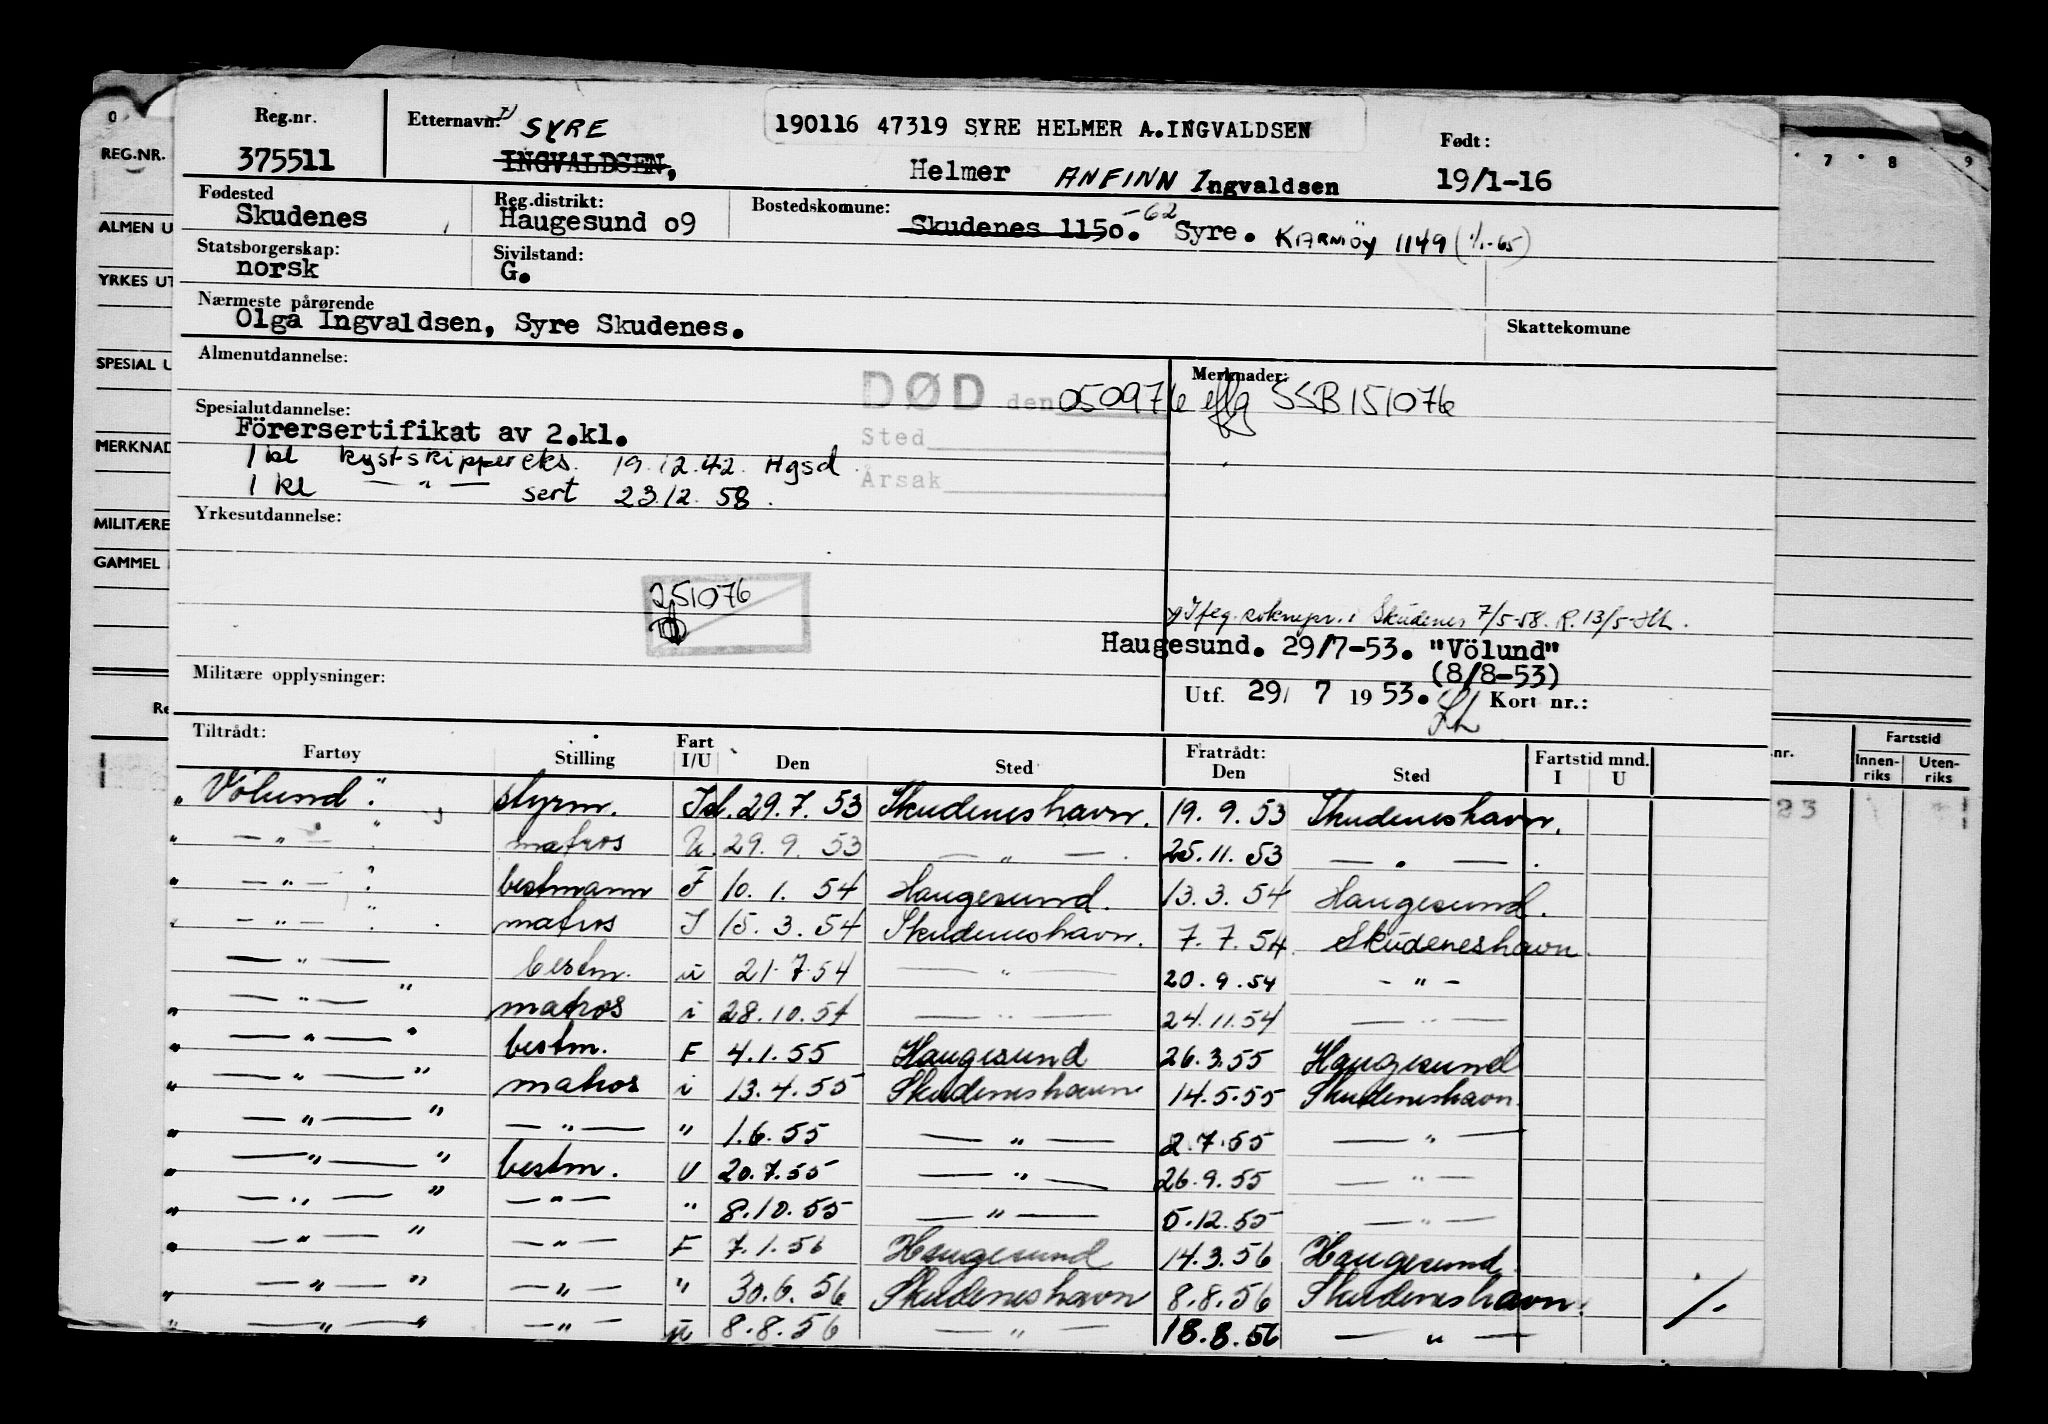 Reg.nr. Etternavn: x) SYRE 190116 47319 SYRE HELMER A.INGVALDSEN Født:
375511 INGVALDSEN, Helmer ANFINN Ingvaldsen 19/1-16
Fødested Reg.distrikt: Bostedskomune:
Skudenes Haugesund 09 Skudenes 1150. -62 Syre. KARMØY 1149 (1/1-65)
Statsborgerskap: Sivilstand:
norsk G.
Nærmeste pårørende
Olga Ingvaldsen, Syre Skudenes. Skattekomune
Almenutdannelse: Merknader:
DØD den 050976 SSB 151076
Spesialutdannelse:
Förersertifikat av 2.kl. Sted
1 kl kystskippereks. 19.12.42. Hgsd
1 kl — " — sert 23.12.58. Årsak
Yrkesutdannelse:
251076
x) Iflg. i Skudenes 7/5-58. R. 13/5-
Haugesund. 29/7-53. "Völund"
(8/8-53)
Militære opplysninger: Utf. 29/ 7 1953. Kort nr.:
Tiltrådt: Fratrådt:
Fartøy Stilling Fart I/U Den Sted Den Sted Fartstid mnd. I U
"Völund". styrm. Isl. 29.7.53 Skudeneshavn. 19.9.53 Skudeneshavn.
" — " — " matros U. 29.9.53 — " — . 25.11.53 — " — .
" — " — " bestmann F 10.1.54 Haugesund. 13.3.54 Haugesund.
" — " — " matros I 15.3.54 Skudeneshavn. 7.7.54 Skudeneshavn.
— " — bestm. u 21.7.54 — " — 20.9.54 — " —
" — " — " matros i 28.10.54 — " — 24.11.54 — " —
" — " — " bestm. F 4.1.55 Haugesund 26.3.55 Haugesund
" — " — " matros i 13.4.55 Skudeneshavn 14.5.55 Skudeneshavn.
" — " — " — " — " 1.6.55 — " — 2.7.55 — " —
" — " — " bestm. U 20.7.55 — " — 26.9.55 — " —
" — " — " — " — " 8.10.55 — " — 5.12.55 — " —
" — " — " — " — F 7.1.56 Haugesund 14.3.56 Haugesund.
" — " — " — " — " 30.6.56 Skudeneshavn 8.8.56 Skudeneshavn. ./.
" — " — " — " — u 8.8.56 — " — 18.8.56 — " —
0
REG.NR.
ALMEN U
YRKES UT
SPESIAL U
MERKNAD
MILITÆRE
GAMMEL
Re
7 8 9
nr. Fartstid
Innen-riks Uten-riks
23